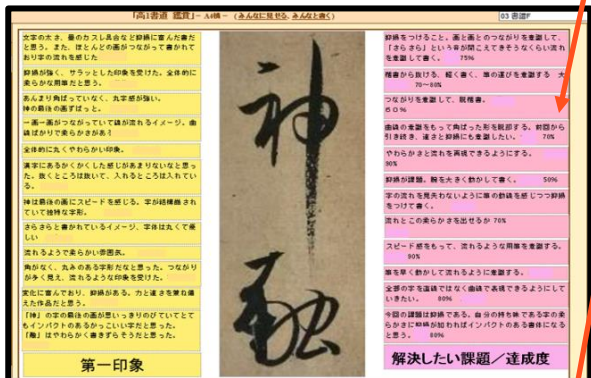 「高1書道 鑑賞」- A4横 - (みんなに見せる、みんなと書く)
03 書道F
文字の太さ、墨のカスレ具合など抑揚に富んだ書だ
と思う。また、ほとんどの画がつながって書かれて
おり字の流れを感じた
抑揚が強く、サラッとした印象を受けた。全体的に
柔らかな用筆だと思う。
あんまり角ばっていなく、丸字感が強い。
神の最後の画ずばっと。
一画一画がつながっていて線が流れるイメージ。曲
線ばかりで柔らかさがある
全体的に丸くてやわらかい印象。
漢字にあるかくかくした感じがあまりないなと思っ
た。抜くところは抜いて、入れるところは入れてい
る。
神は最後の画にスピードを感じる。字が結構崩され
ていて独特な字形。
さらさらと書かれているイメージ、字体は丸くて優
しい
流れるようで柔らかい雰囲気。
角がなく、丸みのある字形だなと思った。つながり
が多く見え、流れるような印象を受けた。
変化に富んでおり、抑揚がある。力と速さを兼ね備
えた作品だと思う。
「神」の字の最後の画が思いっきりのびていてとて
もインパクトのあるかっこいい字だと思った。
「融」はやわらかく書きずらそうだと思った。
第一印象
神融
抑揚をつけること。画と画とのつながりを意識して、
「さらさら」という音が聞こえてきそうなくらい流れ
を意識して書く。 75%
楷書から抜ける、軽く書く、筆の運びを意識する 大
70～80%
つながりを意識して、脱楷書。
60%
曲線の意識をもって角ばった形を脱却する。前回から
引き続き、速さと抑揚にも意識したい。 70%
やわらかさと流れを再現できるようにする。
90%
抑揚が課題。腕を大きく動かして書く。 50%
字の流れを見失わないように筆の動線を感じつつ抑揚
をつけて書く。
流れとこの柔らかさを出せるか 70%
スピード感をもって、流れるような用筆を意識する。
90%
筆を早く動かして流れるように意識する。
全部の字を直線ではなく曲線で表現できるようにして
いきたい。 80%
今回の課題は抑揚である。自分の持ち味である字の柔
らかさに抑揚が加わればインパクトのある書体になる
と思う。 80%
解決したい課題／達成度